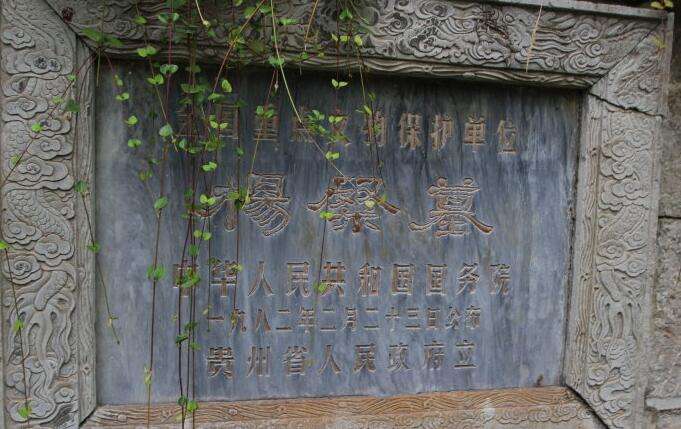 全国重点文物保护单位
杨粲墓
中华人民共和国国务院
一九八二年二月二十三日公布
贵州省人民政府立